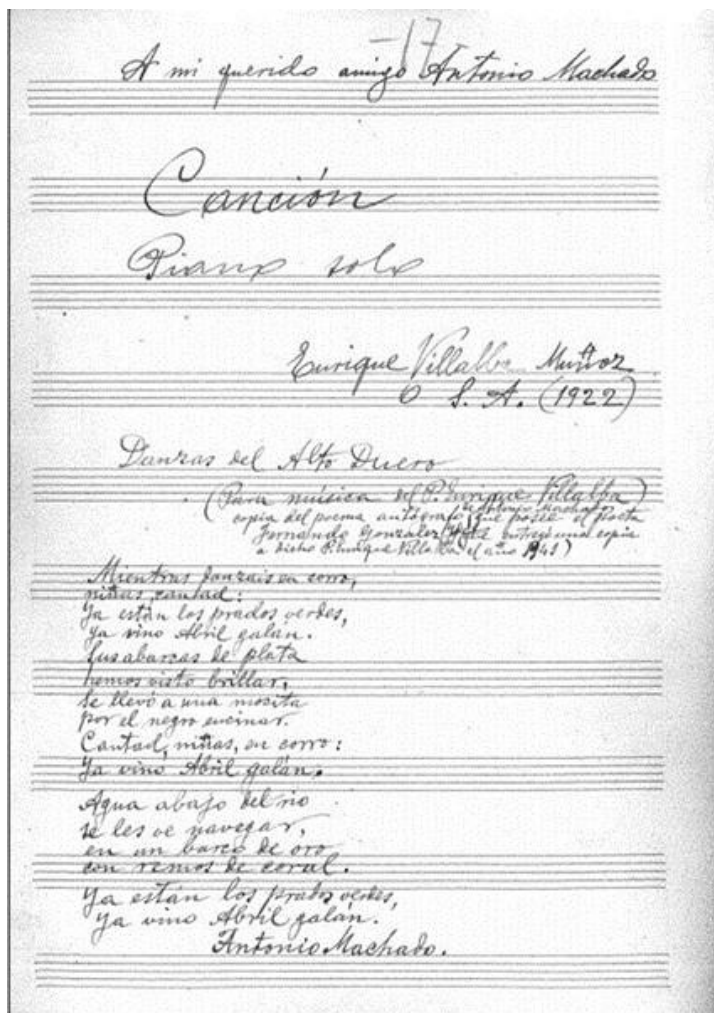 -17-
A mi querido amigo Antonio Machado
Canción
Piano solo
Enrique Villalba Muñoz
O S. A. (1922)
Danzas del Alto Duero
(Para música del P. Enrique Villalba)
de Antonio Machado
copia del poema autógrafo que posee el poeta
Fernando Gonzalez entregó una copia
a dicho P. Enrique Villalba el año 1941)
Mientras danzais en corro,
niñas, cantad:
Ya están los prados verdes,
ya vino Abril galán.
Sus abarcas de plata
hemos visto brillar,
se llevó a una mocita
por el negro encinar.
Cantad, niñas, en corro:
Ya vino Abril galán.
Agua abajo del rio
se les ve navegar,
en un barco de oro
con remos de coral.
Ya están los prados verdes,
Ya vino Abril galán.
Antonio Machado.